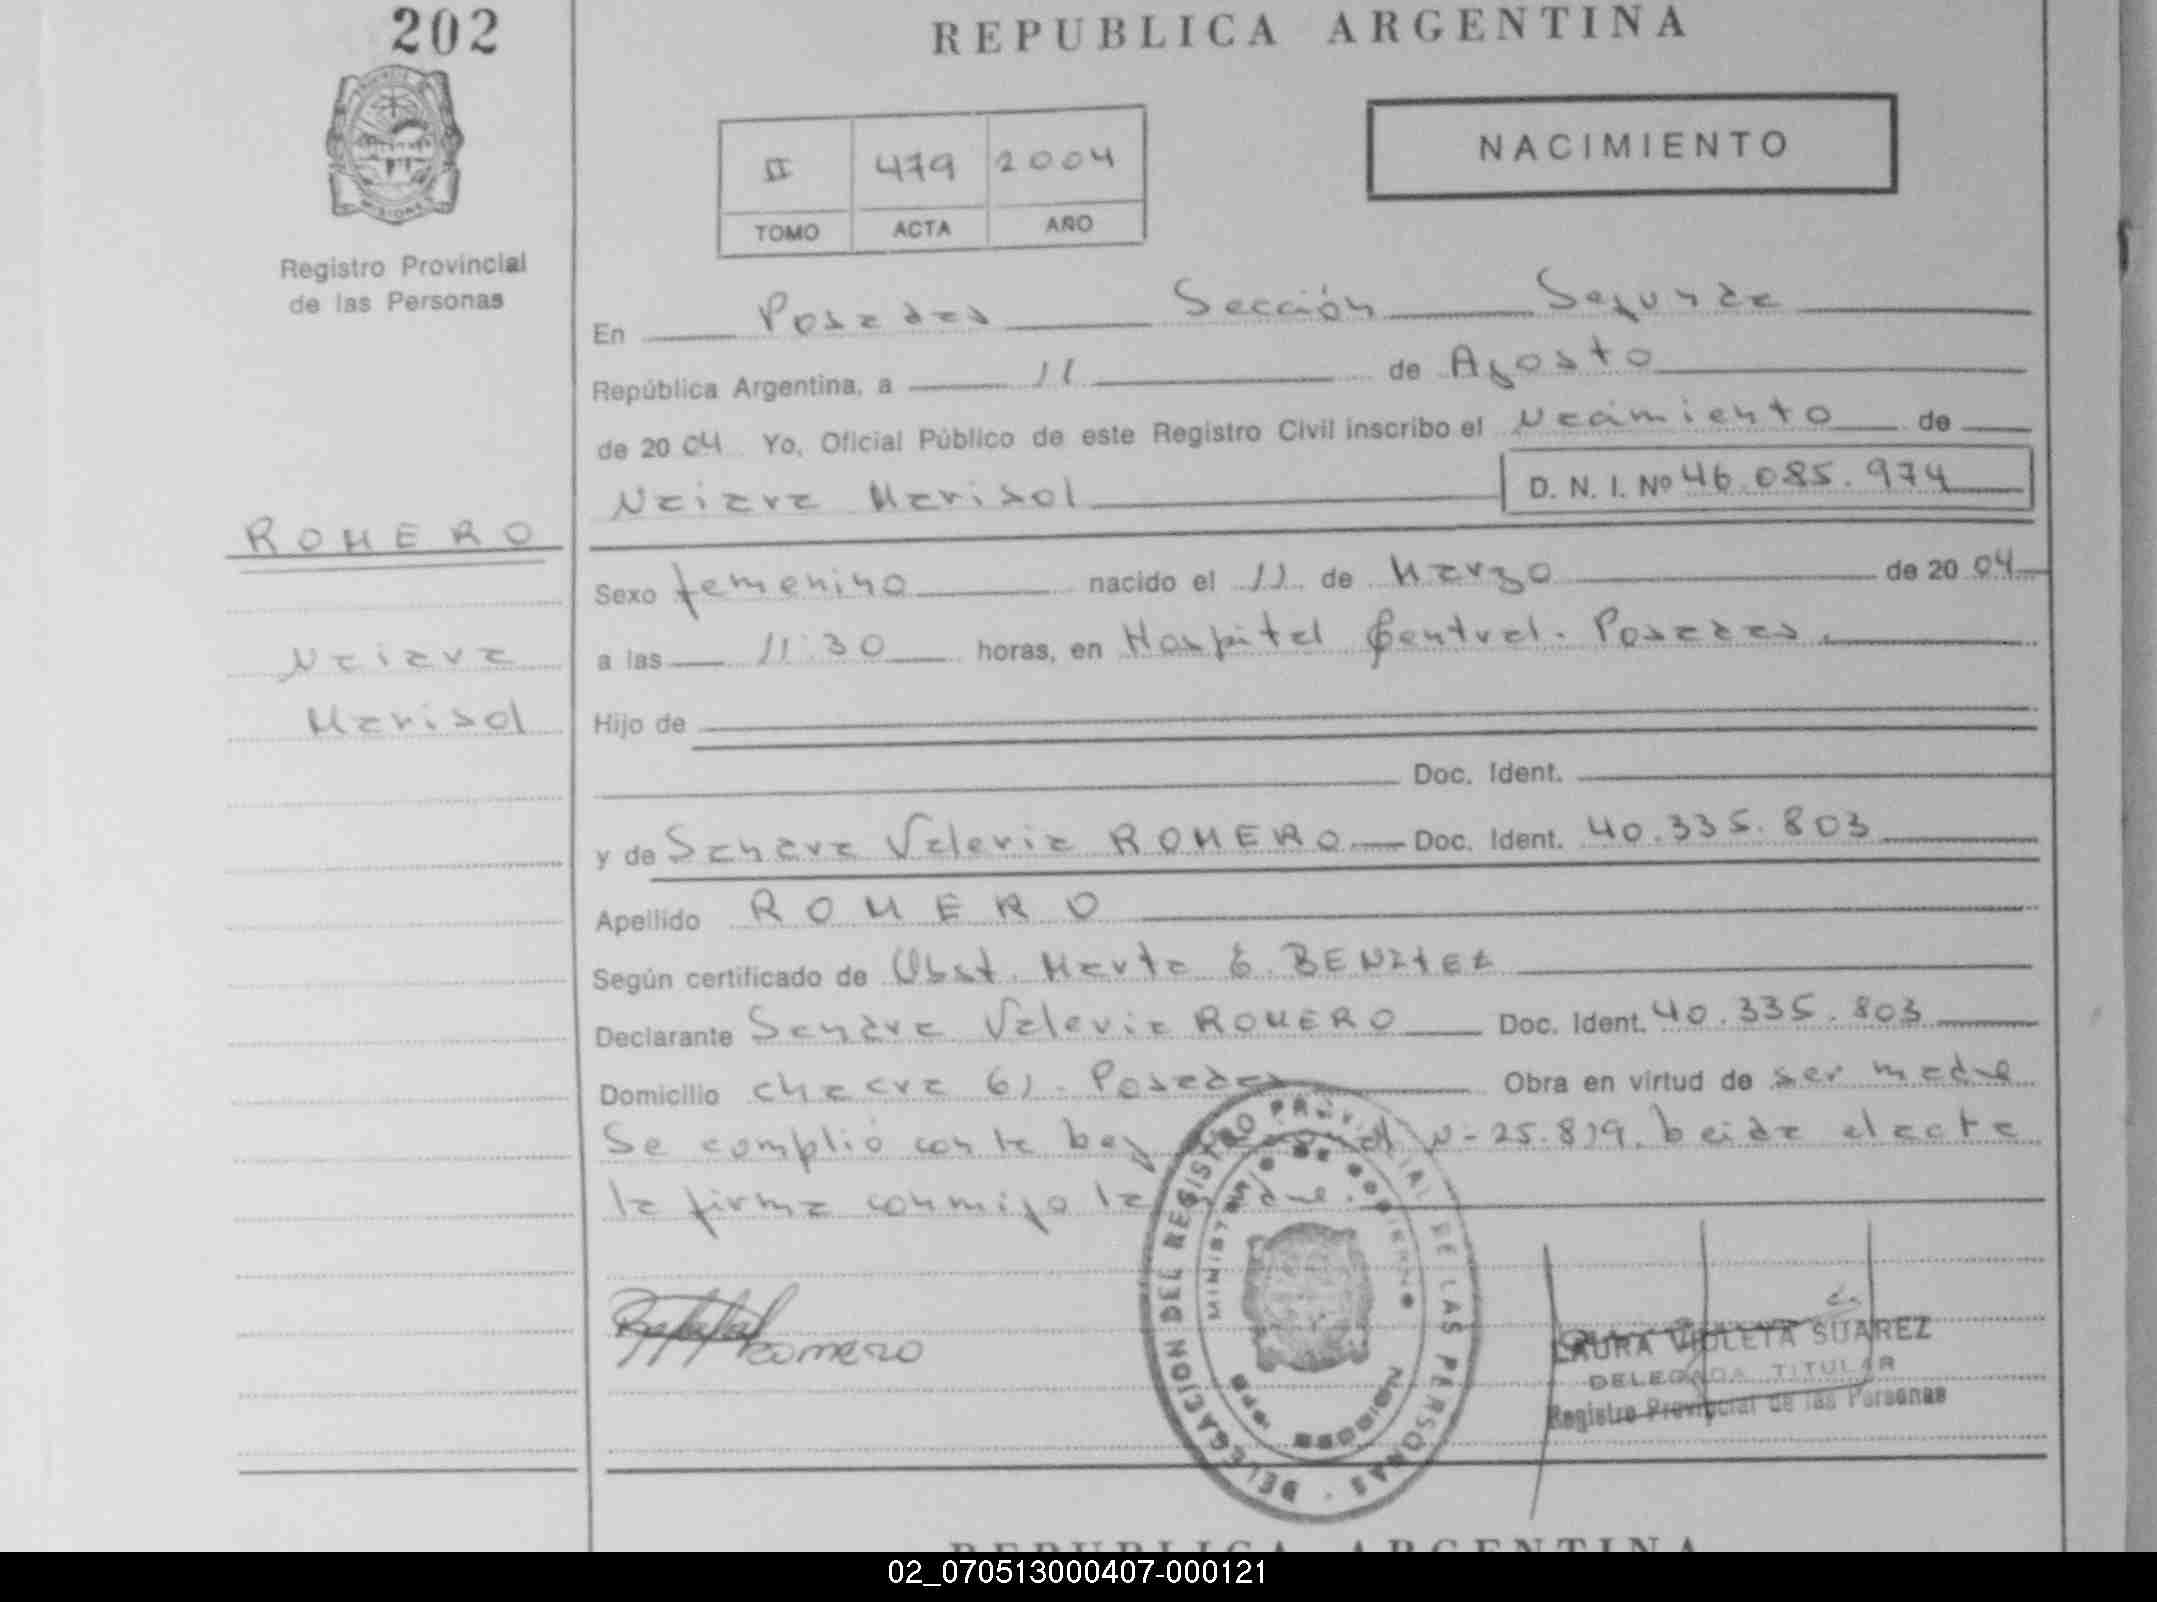 202
REPUBLICA ARGENTINA
II 479 2004
TOMO ACTA AÑO
NACIMIENTO
MISIONES
Registro Provincial
de las Personas
En Posadas Sección Segunda
República Argentina, a 11 de Agosto
de 2004 Yo, Oficial Público de este Registro Civil inscribo el Nacimiento de
Naiara Marisol D. N. I. Nº 46.085.974
ROMERO
Naiara
Marisol
Sexo femenino nacido el 11 de Marzo de 2004
a las 11:30 horas, en Hospital Central. Posadas.
Hijo de
Doc. Ident.
y de Sandra Valeria ROMERO Doc. Ident. 40.335.803
Apellido ROMERO
Según certificado de Obst. Marta E. BENITEZ
Declarante Sandra Valeria ROMERO Doc. Ident. 40.335.803
Domicilio chacra 61. Posadas Obra en virtud de ser madre
Se cumplió con la Ley N-25.819. Leida el acta
la firma conmigo la madre.
ROMERO
DELEGACION DEL REGISTRO PROVINCIAL DE LAS PERSONAS
MINISTERIO DE GOBIERNO
MISIONES
LAURA VIOLETA SUAREZ
DELEGADA TITULAR
Registro Provincial de las Personas
REPUBLICA ARGENTINA
02_070513000407-000121